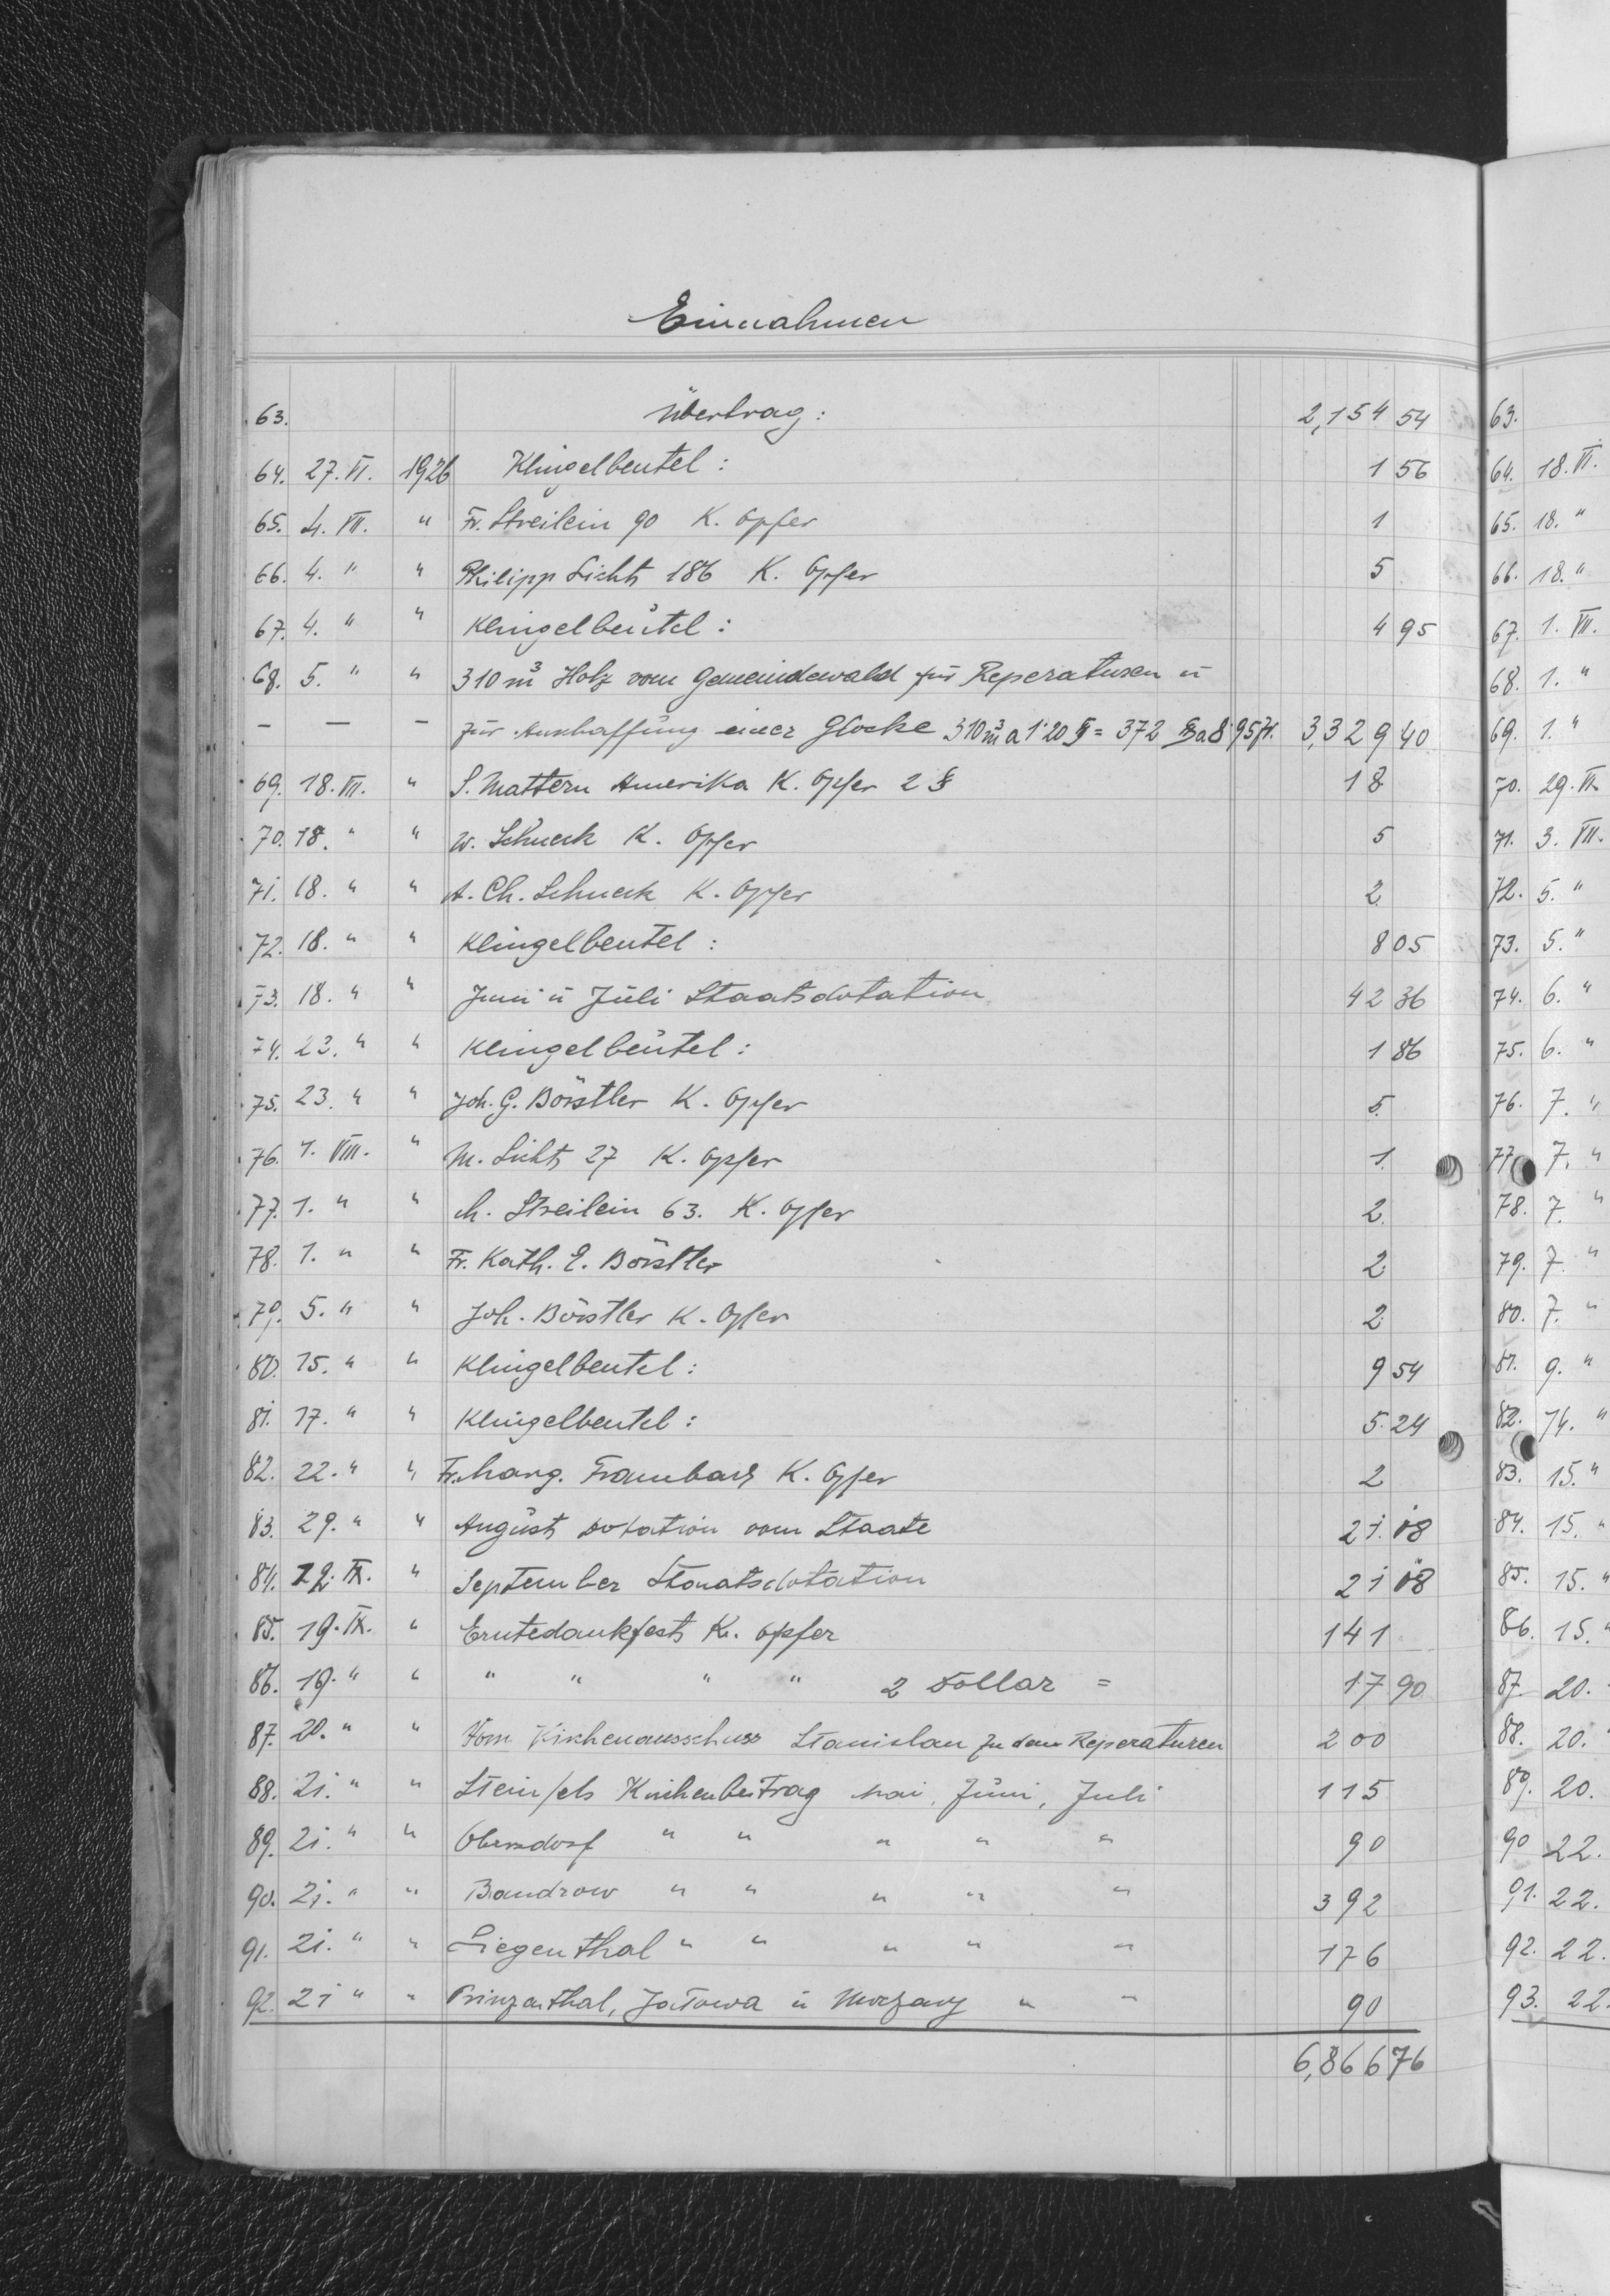 Einnahmen
63. Übertrag: 2,154 54
64. 27. VI. 1926 Klingelbeutel: 1 56
65. 4. VII. " Fr. Streilein 90 K. Opfer 1
66. 4. " " Philipp Licht 186 K. Opfer 5
67. 4. " " Klingelbeutel: 4 95
68. 5. " " 310 m³ Holz vom Gemeindewald für Reperaturen u
– – – zur Anschaffung einer Glocke 310 m³ a 1·20 $ = 372 $ a 8·95 zł. 3,329 40
69. 18. VII. " S. Mattern Amerika K. Opfer 2 $ 18
70. 18. " " W. Schneck K. Opfer 5
71. 18. " " A. Ch. Schneck K. Opfer 2
72. 18. " " Klingelbeutel: 8 05
73. 18. " " Juni u Juli Staatsdotation 42 36
74. 23. " " Klingelbeutel: 1 86
75. 23. " " Joh. G. Börstler K. Opfer 5
76. 1. VIII. " M. Licht 27 K. Opfer 1
77. 1. " " M. Streilein 63. K. Opfer 2
78. 1. " " Fr. Kath. E. Börstler 2
79. 5. " " Joh. Börstler K. Opfer 2
80. 15. " " Klingelbeutel: 9 54
81. 17. " " Klingelbeutel: 5 24
82. 22. " " Fr. Marg. K. Opfer 2
83. 29. " " August Dotation vom Staate 21. 08
84. 12. IX. " September Staatsdotation 21 08
85. 19. IX. " Erntedankfest K. Opfer 141
86. 19. " " " " " " 2 Dollar = 17 90
87. 20. " " Vom Kirchenausschuss Stanislau zu den Reperaturen 200
88. 21. " " Steinfels Kirchenbeitrag Mai, Juni, Juli 115
89. 21. " " Obersdorf " " " " " 90
90. 21. " " Bandrow " " " " " 392
91. 21. " " Siegenthal " " " " " 176
92. 21 " " Prinzenthal, u " " 90
6,866 76
63.
64. 18. VI.
65. 18. "
66. 18. "
67. 1. VII.
68. 1. "
69. 1. "
70. 29. VI.
71. 3. VII.
72. 5. "
73. 5. "
74. 6. "
75. 6. "
76. 7. "
77. 7. "
78. 7. "
79. 7. "
80. 7. "
81. 9. "
82. 14. "
83. 15. "
84. 15. "
85. 15. "
86. 15. "
87. 20. "
88. 20. "
89. 20.
90 22.
91. 22.
92. 22.
93. 22.